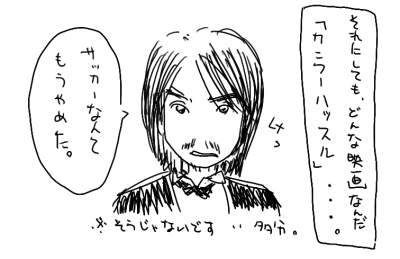 それにしても、どんな映画なんだ
「カンフーハッスル」・・・・。
サッカーなんて
もうやめた。
※そうじゃないです‥多分。